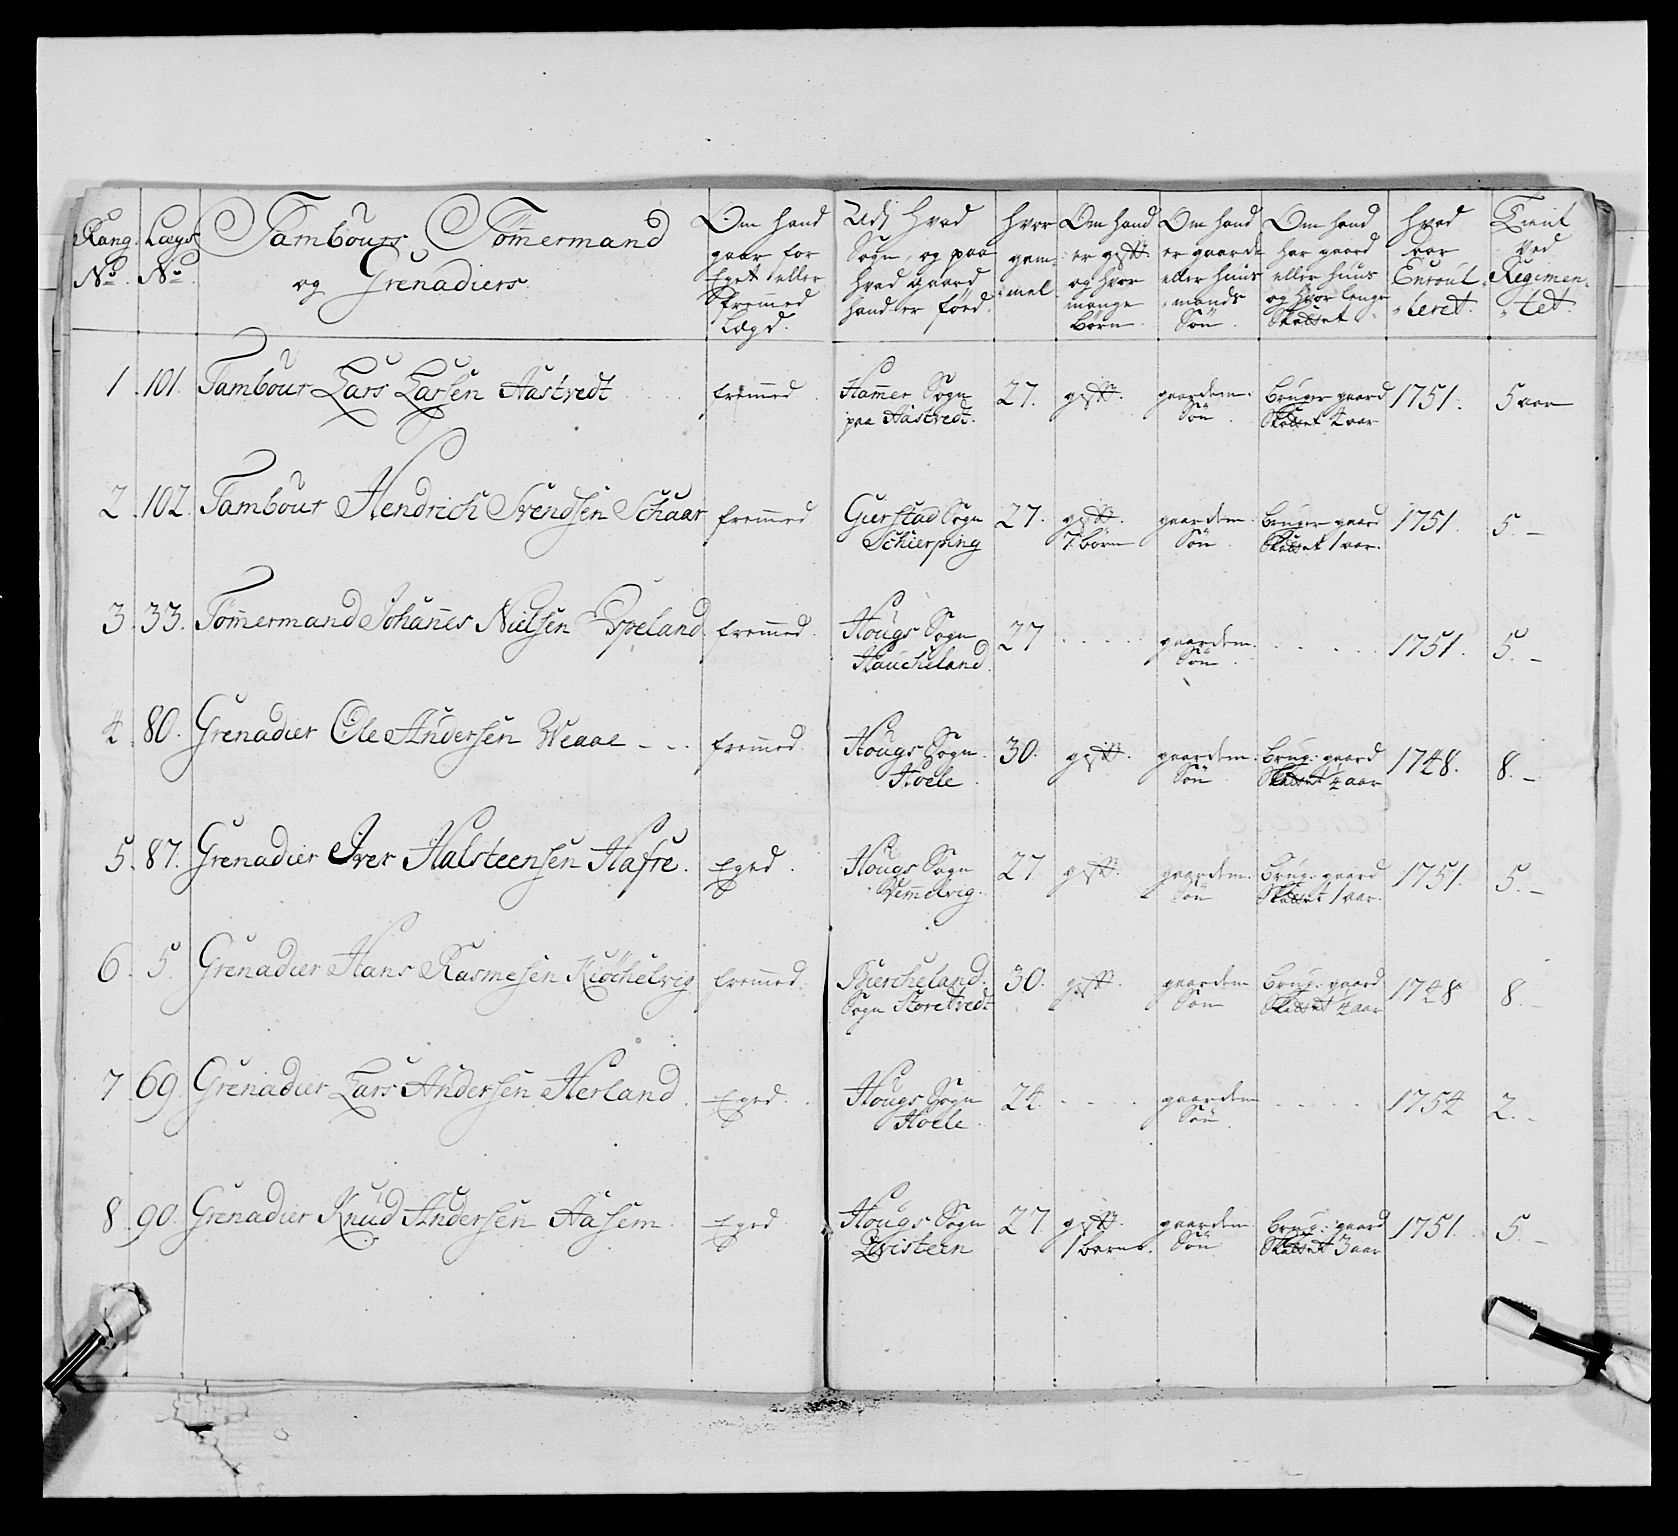 Rang No. | Lægs No. | Tambours Tømmermand og Grenadiers. | Om hand gaar for Eget eller fremed Lægd. | Udj Hvad Sogn, og paa hvad gaard, hand er føed. | hvor gam„mel | Om hand er gift og hvor mange Børn. | Om hand er gaards eller huus„mands Søn. | Om hand har gaard eller huus og hvor lenge Skadset. | hvad aar Enroul„leret. | Tient Ved Regimen„tet.
1. | 101. | Tambour Lars Larsen Aastvedt | fremed. | Hamer Sogn paa Aastvedt. | 27. | gift. | gaardem: Søn. | Bruger gaard Skadset 4 aar | 1751. | 5 aar
2. | 102. | Tambour Hendrich Svendsen Schaar | fremed. | Gierstad Sogn Schierping | 27. | gift. 7. børn | gaardem: Søn. | Bruger gaard Skadset 1 aar. | 1751. | 5. —
3. | 33. | Tømermand Johanes Nielsen Espeland. | fremed. | Hougs Sogn Haucheland. | 27 | . . . . | gaardem. Søn. | . . . . | 1751. | 5. —
4. | 80. | Grenadier Ole Andersen Weaae - - . | fremed. | Hougs Sogn. Hoele. | 30. | gift. | gaardem: Søn. | Brug: gaard Skadset 4 aar | 1748. | 8. —
5. | 87. | Grenadier Iver Halsteensen Hafre. | Eged. | Hougs Sogn Vemelvig. | 27 | gift. | gaardem. Søn | Brug: gaard Skadset 1 aar. | 1751. | 5. —
6. | 5. | Grenadier Hans Rasmesen Kiøchelvig | fremed. | Biercheland. Sogn Storetvedt | 30. | gift. | gaardem Søn | Brug: gaard Skadset 4 aar | 1748 | 8. —
7 | 69. | Grenadier Lars Andersen Herland. | Eged. . | Hougs Sogn Hoele. | 24. | . . . . | gaardem Søn. | . . . . | 1754 | 2. -
8. | 90. | Grenadier Knud Andersen Aasem. | Eged | Hougs Sogn Qvisteen | 27. | gift. 1 barn. | gaardem Søn. | Brug: gaard Skadset 3 aar | 1751. | 5. —